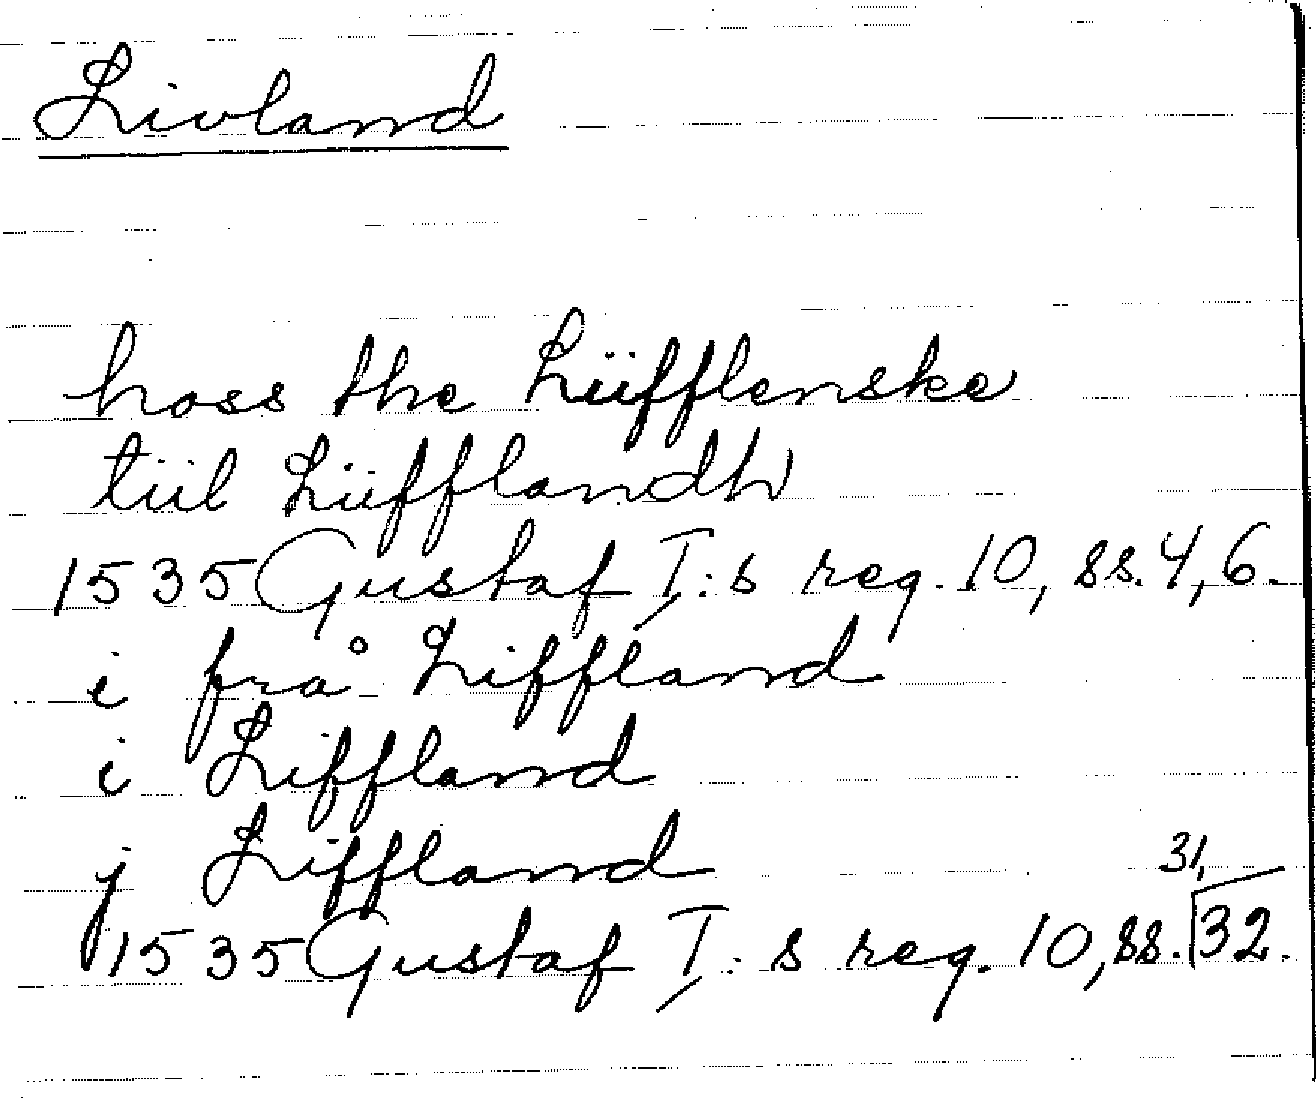 Livland
hoss the Liifflenske
tiil Liifflandh
1535 Gustaf I:s reg. 10, ss. 4, 6.
i från Liffland
i Liffland
j Liffland
31,
1535 Gustaf I:s reg. 10, ss. 32.